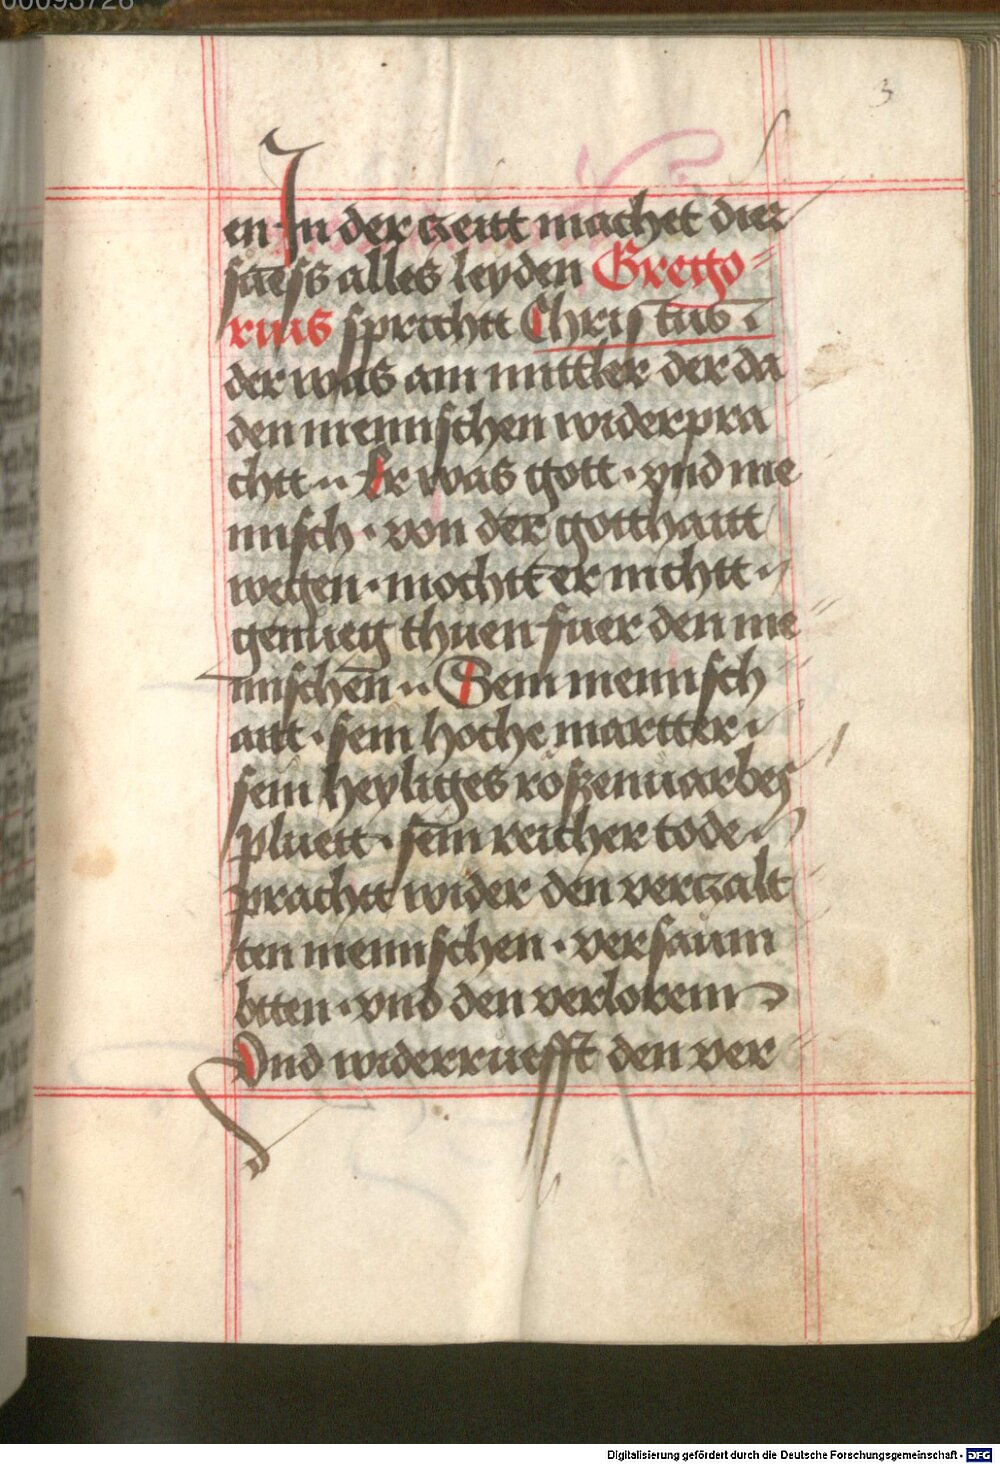 00093728
3
en In der zeitt machet dier
süeß alles leyden Grego-
rius sprichtt Christus .
der was am mittler der da
den mennschen widerpra
chtt .. Er was gott . vnd me
nnsch . von der gotthaitt
wegen . mochtt er nichtt .
genueg thuen fuer den me
nnschen .. Sein mennsch
aitt . sein hoche martter .
sein heyliges roszenuarbes
pluett . sein reicher tode .
prachtt wider den verzalt
ten mennschen . versaum
btten . vnd den verlorenn
Vnd widerruefft den ver
Digitalisierung gefördert durch die Deutsche Forschungsgemeinschaft - DFG